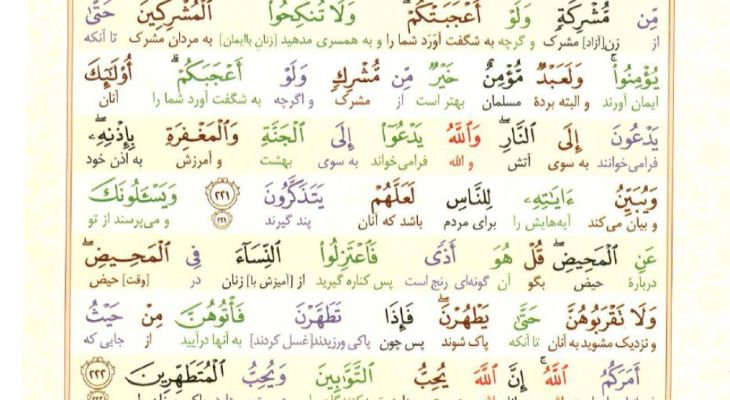 مِّن مُّشْرِكَةٍ وَلَوْ أَعْجَبَتْكُمْ ۗ وَلَا تُنكِحُوا۟ ٱلْمُشْرِكِينَ حَتَّىٰ
از زن [آزاد] مشرک و گرچه به شگفت آورَد شما را و به همسری مدهید [زنانِ باایمان] به مردان مشرک تا آنکه
يُؤْمِنُوا۟ ۚ وَلَعَبْدٌ مُّؤْمِنٌ خَيْرٌ مِّن مُّشْرِكٍ وَلَوْ أَعْجَبَكُمْ ۗ أُو۟لَـٰٓئِكَ
ایمان آورند و البته بردهٔ مسلمان بهتر است از مشرک و اگرچه به شگفت آورد شما را آنان
يَدْعُونَ إِلَى ٱلنَّارِ ۖ وَٱللَّهُ يَدْعُوٓا۟ إِلَى ٱلْجَنَّةِ وَٱلْمَغْفِرَةِ بِإِذْنِهِۦ ۖ
فرامی‌خوانند به سوی آتش و الله فرامی‌خواند به سوی بهشت و آمرزش به اذن خود
وَيُبَيِّنُ ءَايَـٰتِهِۦ لِلنَّاسِ لَعَلَّهُمْ يَتَذَكَّرُونَ ٢٢١ وَيَسْـَٔلُونَكَ
و بیان می‌کند آیه‌هایش را برای مردم باشد که آنان پند گیرند ٢٢١ و می‌پرسند از تو
عَنِ ٱلْمَحِيضِ ۖ قُلْ هُوَ أَذًى فَٱعْتَزِلُوا۟ ٱلنِّسَآءَ فِى ٱلْمَحِيضِ ۖ
دربارهٔ حیض بگو آن گونه‌ای رنج است پس کناره گیرید از [آمیزش با] زنان در [وقت] حیض
وَلَا تَقْرَبُوهُنَّ حَتَّىٰ يَطْهُرْنَ ۖ فَإِذَا تَطَهَّرْنَ فَأْتُوهُنَّ مِنْ حَيْثُ
و نزدیک مشوید به آنان تا آنکه پاک شوند پس چون پاکی ورزیدند [غسل کردند] به آنها درآیید از جایی که
أَمَرَكُمُ ٱللَّهُ ۚ إِنَّ ٱللَّهَ يُحِبُّ ٱلتَّوَّٰبِينَ وَيُحِبُّ ٱلْمُتَطَهِّرِينَ ٢٢٢